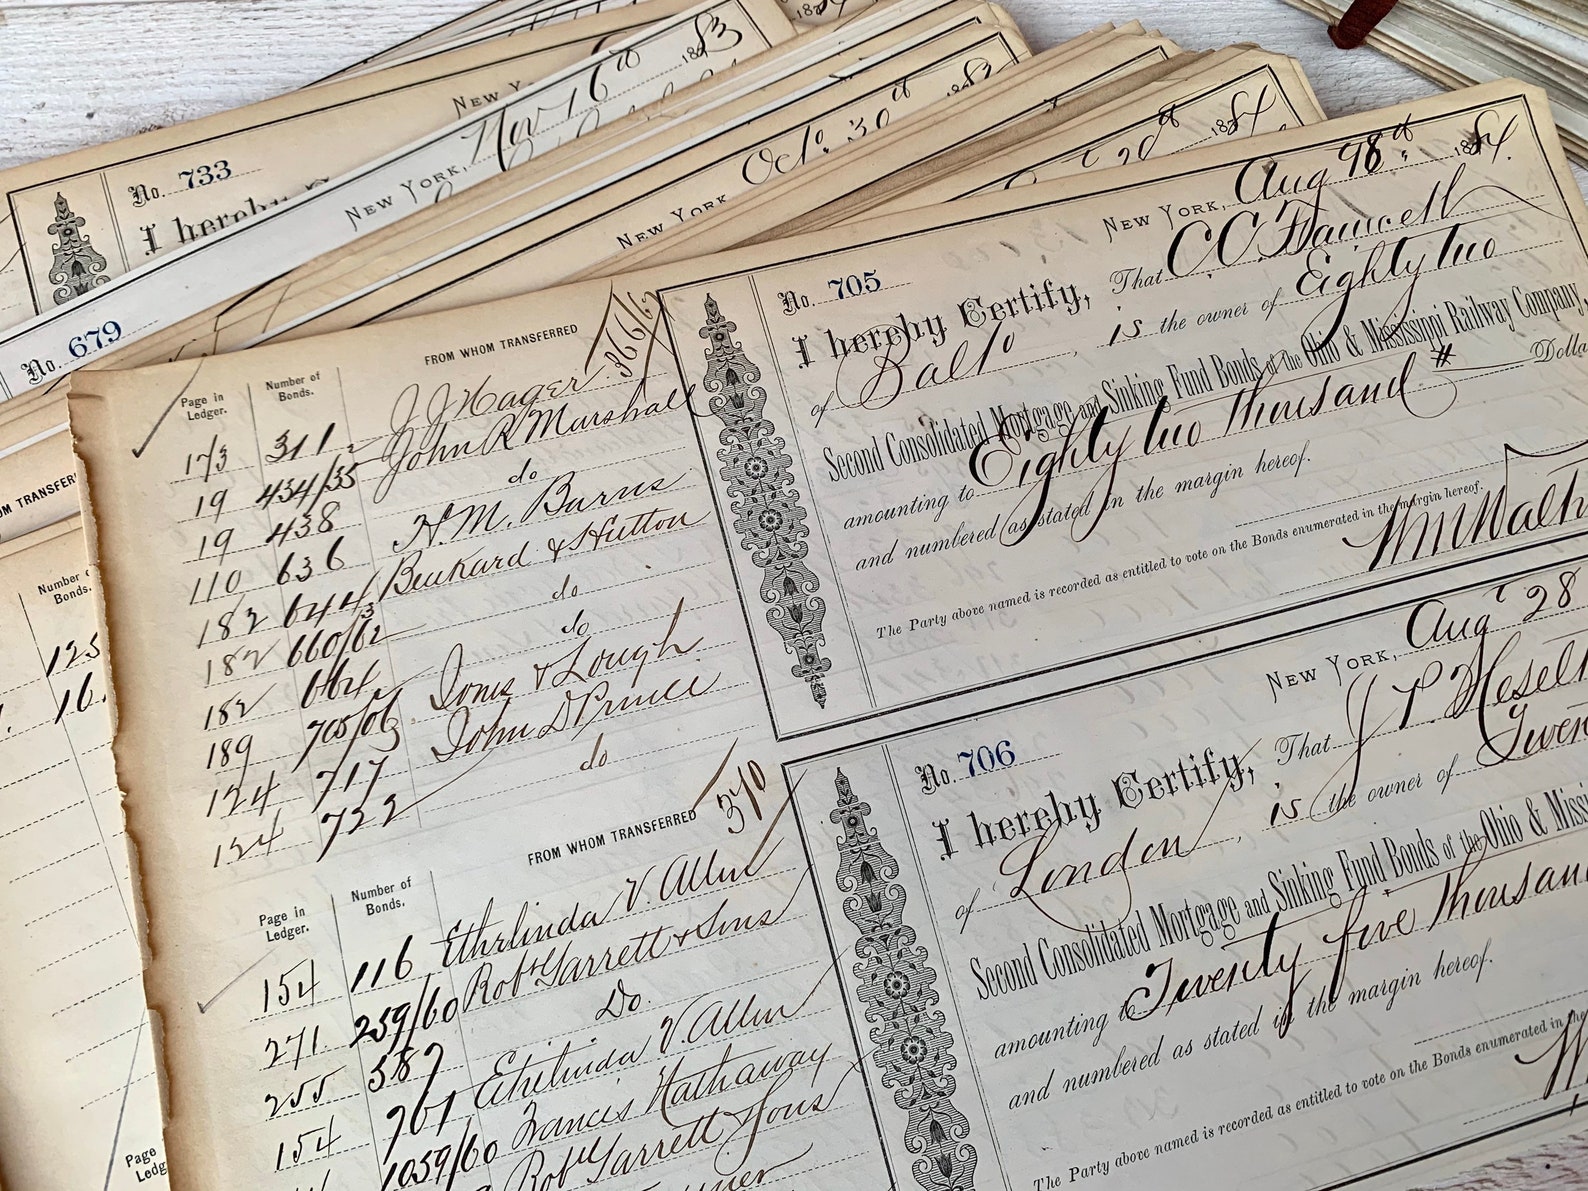 New York, Nov 16th 1883
No. 733
I hereby
New York,
No. 679
New York Oct. 30th 188
29th 1884
FROM WHOM TRANSFERRED
Page in Ledger. Number of Bonds.
173 311 J J Hager 366/67
19 434/35 John R Marshall
19 438 do
110 636 H. M. Burns
182 644 & Hutton
182 660/63 do
182 664 do
189 705/06 Jones & Lough
124 717 John D Prince
124 722 do
No. 705 New York, Aug 28th 1884.
I hereby Certify, That C. C. Fawcett
of Balto, is the owner of Eighty two
Second Consolidated Mortgage and Sinking Fund Bonds of the Ohio & Mississippi Railway Company,
amounting to Eighty two thousand # Dolla
and numbered as stated in the margin hereof.
The Party above named is recorded as entitled to vote on the Bonds enumerated in the margin hereof.
Wm Walk
FROM WHOM TRANSFERRED 370
Page in Ledger. Number of Bonds.
154 116 Ethelinda V. Allen
271. 259/60 Robt Garrett & Sons
255 587 Do.
154 761 Ethelinda V. Allen
1059/60 Francis Hathaway
Robt Garrett & Sons
No. 706 New York, Aug 28
I hereby Certify, That J P. Heselt
of London, is the owner of Twen
Second Consolidated Mortgage and Sinking Fund Bonds of the Ohio & Missi
amounting to Twenty five thousan
and numbered as stated in the margin hereof.
The Party above named is recorded as entitled to vote on the Bonds enumerated in the
OM WHOM TRANSFER
Number
Bonds.
125
16.
Page
Ledg